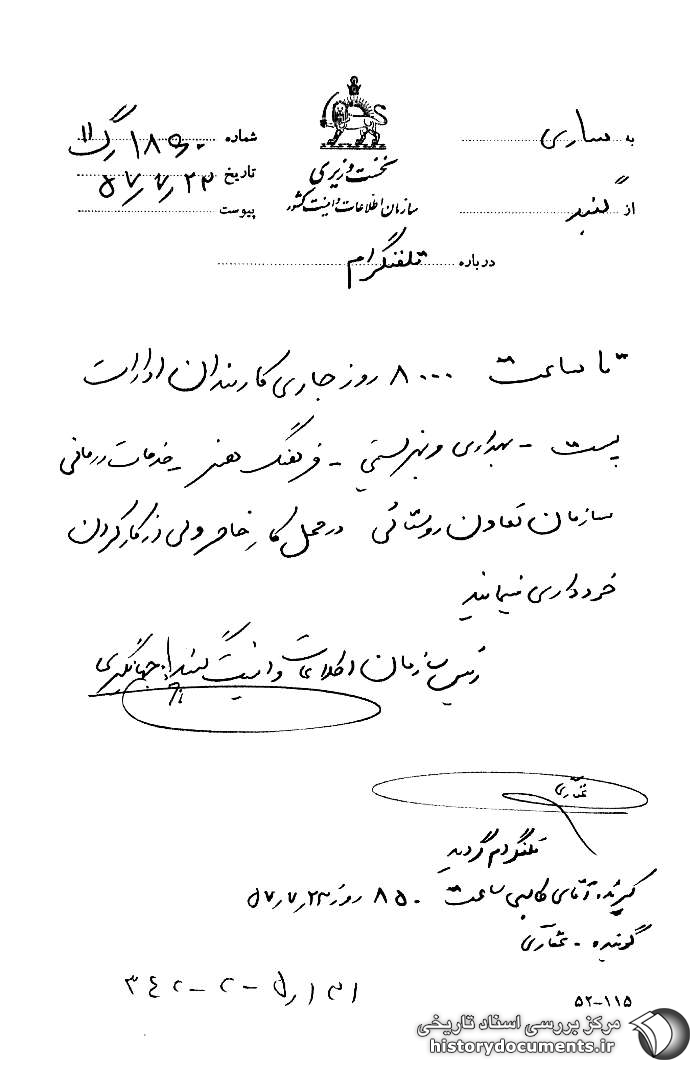 به ساری
از گنبد
نخست وزیری
سازمان اطلاعات و امنیت کشور
شماره ۱۸۶۰ / گ ۱۱
تاریخ ۵۷٫۷٫۲۳
پیوست
درباره تلفنگرام
تا ساعت ۸۰۰۰ روز جاری کارمندان ادارات
پست - بهداری و بهزیستی - فرهنگ هنر - خدمات درمانی
سازمان تعاون روستائی در محل کار حاضر ولی از کار کردن
خودداری مینمایند
رئیس سازمان اطلاعات و امنیت گنبد. جهانگیری
غفاری
تلفنگرام گردید
گیرنده آقای طالبی ساعت ۸۵۰ روز ۵۷٫۷٫۲۳
گوینده - غفاری
۵۲-۱۱۵
مرکز بررسی اسناد تاریخی
historydocuments.ir